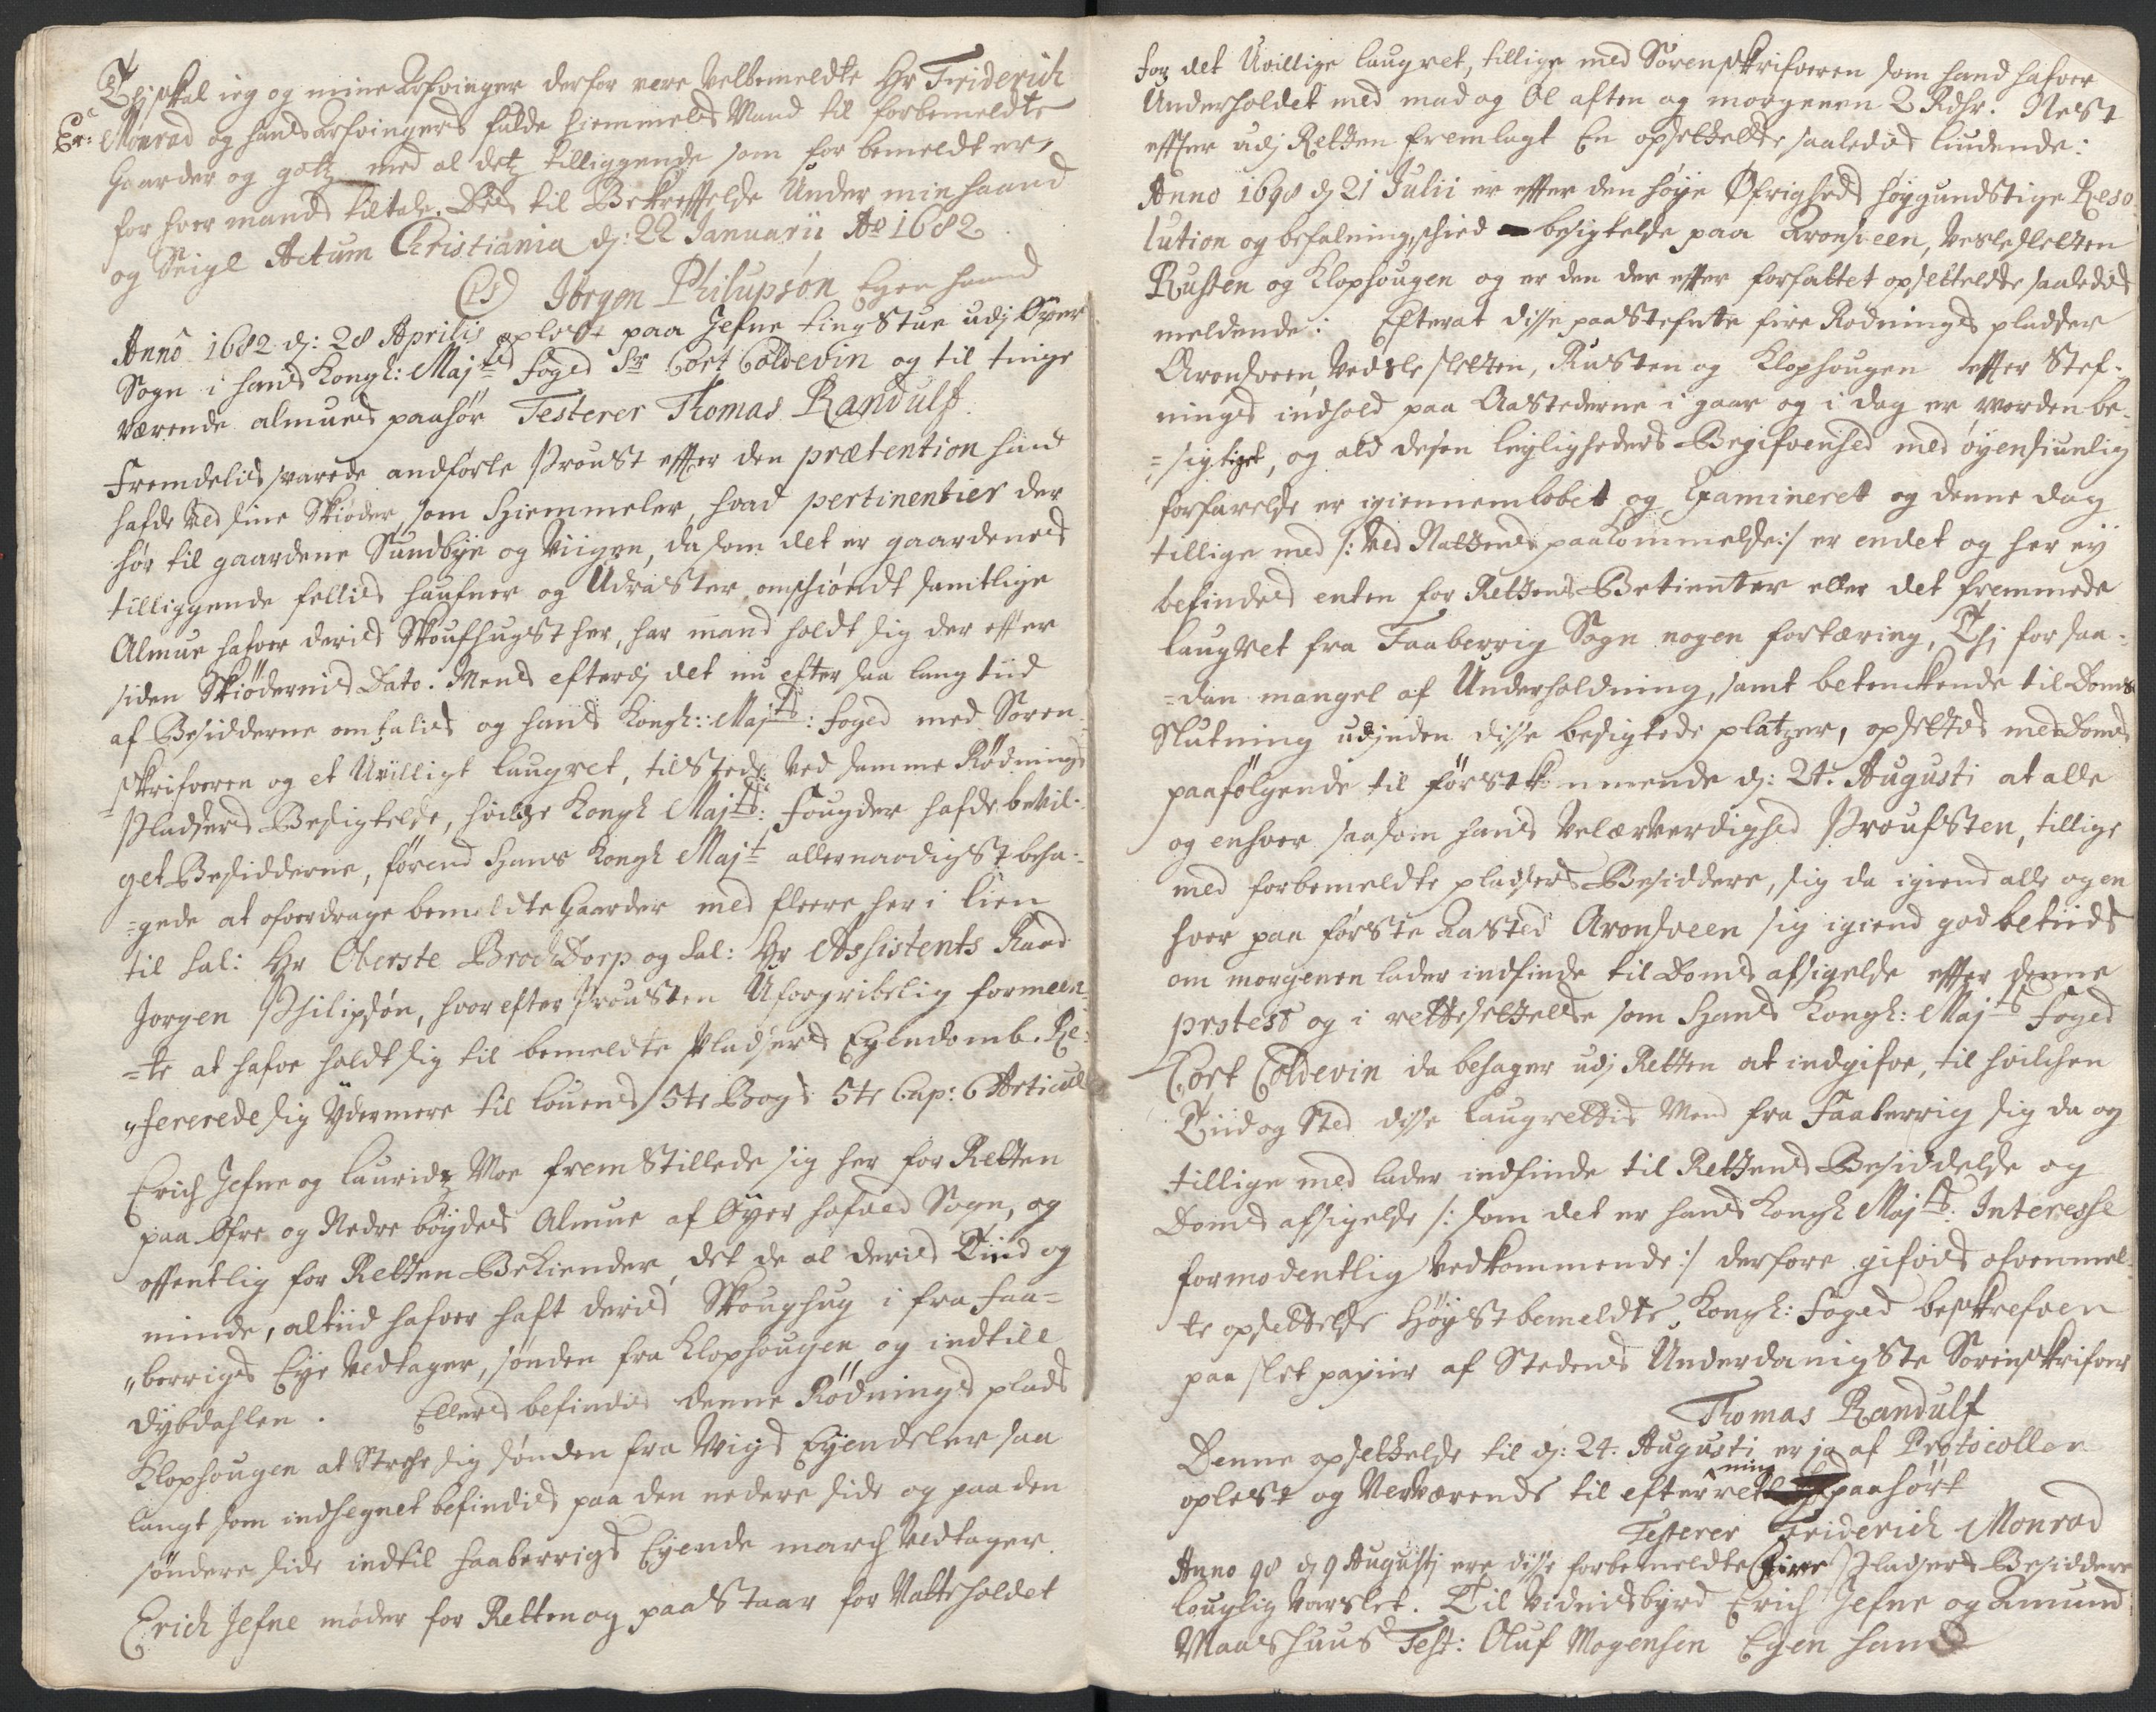 Thj skal ieg og mine Arfvinger derfor vere Velbemeldte Hr Friderich
Er: Monrad og hands Arfvingers fulde hiemmels Mand til forbemeldte
Gaarder og gotz med al detz tilliggende som for bemeldt er,
for hver mands tiltale. Dets til Bekreftelse Under min haand
og Seigl Actum Christiania dj: 22 Januarii Ao 1682
(LS) Jørgen Philupsøn Egen haand
Anno 1682 dj: 28 Aprilis oplest paa Jefne tingstue udj Øyer
Sogn i hands Kongl: Majts foged Sr Cort Coldevin og til tinge
værende almues paahør Testerer Thomas Randulf.
Fremdelis svarede andførte Proust effter den prætention hand
hafde ved sine Skiøder, som Hiemmeler, hvad pertinentier der
hør til gaardene Sundbye og Viigen, da som det er gaardenes
tilliggende fellis haufner og Udraster, omschiøndt samtlige
Almue hafver deris Skoufhugst her, har mand holdt sig der effter
siden Skiødernis Dato. Mens efterdj det nu efter saa lang tiid
af Besidderne omtalis og hands Kongl: Majts: foged med Soren-
skrifveren og et Uvilligt laugret, tilstede ved samme Rødnings
Pladsers Besigtelse, hvilke Kongl Majts: Fougder hafde bevil-
get Besidderne, førend Hans Kongl Majt allernaadigst beha-
=gede at ofverdrage bemeldte Gaarder med fleere her i lien
til Sal: Hr Oberste BrochDorp og Sal: Hr Assistents Raad
Jørgen Philipsøn, hvorefter Prousten Uforgribelig formeen-
=te at hafve holdt sig til bemeldte Pladsers Eyendomb. Re-
"fererede sig Ydermere til lovens 5te Bogs 5te Cap: 6 Articul
Erich Jefne og Lauridz Moe fremstillede sig her for Retten
paa Øfre og Nedre bøydes Almue af Øyer hofved Sogn, og
offentlig for Retten Bekiender, det de al deris Tiid og
minde, altiid hafver haft deris Skoughug i fra Faa-
"berrigs Eye Vedtager, sønden fra Klophougen og indtill
Dybdahlen. Ellers befindis denne Rødnings plads
Klophougen at Streche sig sønden fra Wigs Eyendeler saa
langt som indhegnet befindis paa den nedere side og paa den
søndere side indtil Faaberrigs Eyende march Vedtager.
Erich Jefne møder for Retten og paastaar for Natteholdet
for det Uvillige laugret, tillige med Sørenskrifveren som hand hafver
Underholdet med mad og Øl aften og morgenen 2 Rdlr. Nest
effter udj Retten fremlagt En opsettelse saaledis liudende:
Anno 1698 dj 21 Julii er effter den høye Øfrigheds høygundstige Reso-
lution og befalning, schied besigtelse paa Aronsveen, Veslesletten
Rusten og Klophougen og er den der effter forfattet opsettelse saaledis
meldende: Efterat disse paastefnte fire Rødnings pladser
Aronsveen, Vedsle Sletten, Rusten og Klophougen effter Stef-
nings indhold paa Aastederne i gaar og i dag er worden be-
=sigtiget, og ald desen leyligheders Begifvenhed med øyensiunlig
forfarelse er igiennemløbet og Examineret og denne dag
tillige med /: Ved Nattens paakommelse :/ er endet og her ey
befindes enten for Rettens Betienter eller det fremmede
laugret fra Faaberrig Sogn nogen fortæring, Thj for saa-
=dan mangel af Underholdning, samt betenckende til Doms
Slutning udjinden disse besigtede platzer, opsettes med Doms
paafølgende til førstkommende dj: 24. Augusti at alle
og enhver saasom hands VelærVerdighed Proufsten, tillige
med forbemeldte pladsers Besiddere, sig da igiend alle og en
hver paa første Aasted Aronsveen sig igiend god betiids
om morgenen lader indfinde til Doms afsigelse effter denne
protest og i rettesettelse som Hands Kongl: Majts Foged
Cort Coldevin da behager udj Retten at indgifve, til hvilchen
Tiid og Sted disse laugrettis Mend fra Faaberrig sig da og
tillige med lader indfinde til Rettens Besiddelse og
Doms afsigelse /: som det er hands Kongl Majts. Interesse
formodentlig Vedkommende :/ derfore gifves ofvenmel-
te opsettelse Høystbemeldte Kongl: foged beskrefven
paa slet papiir af Stedens Underdanigste Sorinskrifver
Thomas Randulf
Denne opsettelse til dj: 24. Augusti er ja af Protocollen
oplest og Nerværende til efterretning paahørt
Testerer Friderich Monrad
Anno 98 dj 9 Augustj ere disse forbemeldte fire Pladsers Besiddere
louglig varslet. Til Vidnisbyrd Erich Jefne og Amund
Maashuus Test: Oluf Mogensen Egen haand